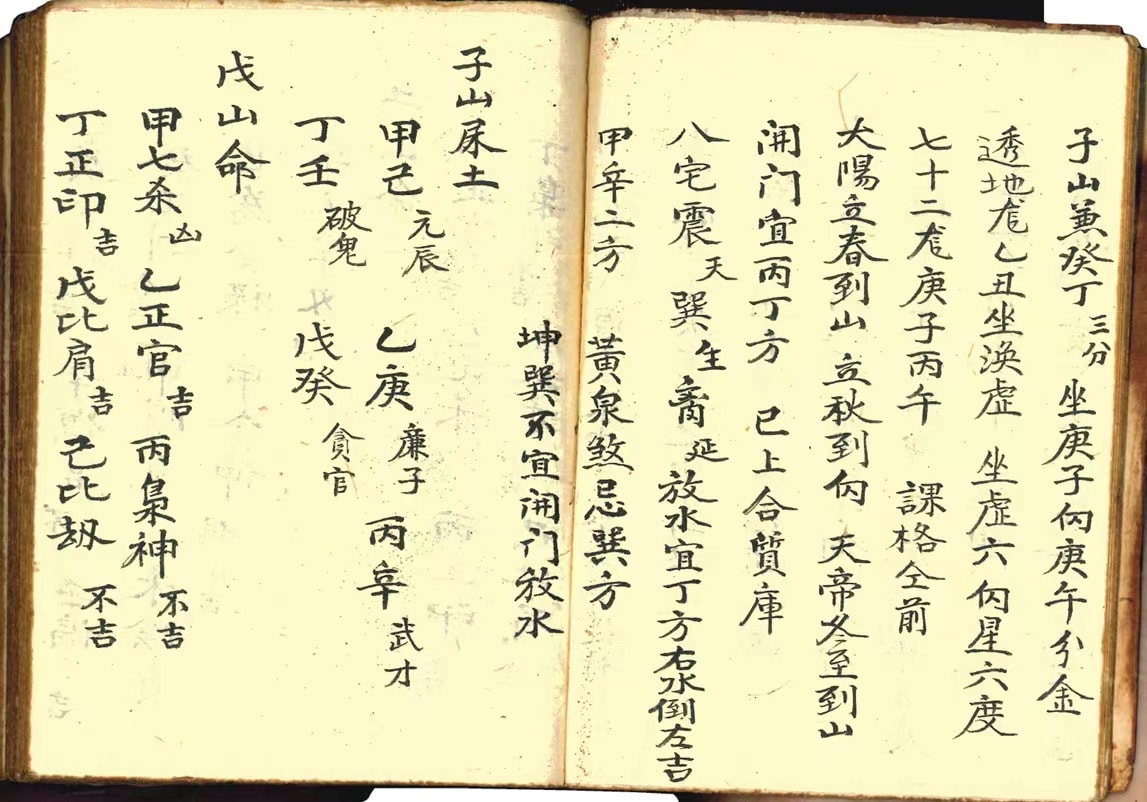 子山兼癸丁三分 坐庚子向庚午分金
透地龙乙丑坐渙虚 坐虚六向星六度
七十二龙庚子丙午 課格仝前
太陽立春到山 立秋到向 天帝冬至到山
開门宜丙丁方 已上合質庫
八宅震天巽生离延放水宜丁方右水倒左吉
甲辛二方 黃泉煞忌巽方
坤巽不宜開门放水
子山尿土
甲己元辰 乙庚廉子 丙辛武才
丁壬破鬼 戊癸貪官
戊山命
甲七杀凶 乙正官吉 丙梟神不吉
丁正印吉 戊比肩吉 己比劫不吉